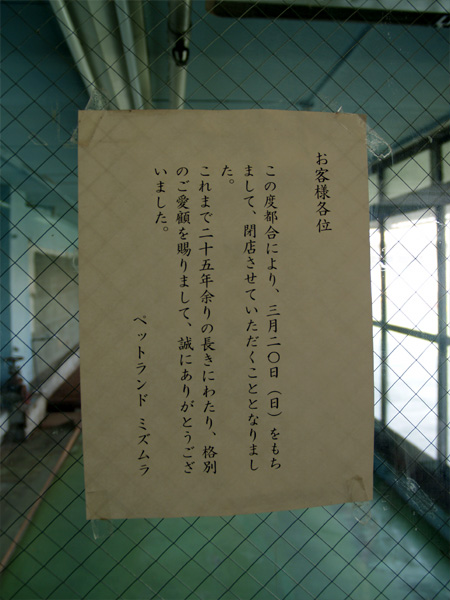 お客様各位
この度都合により、三月二〇日（日）をもち
まして、閉店させていただくこととなりまし
た。
これまで二十五年余りの長きにわたり、格別
のご愛顧を賜りまして、誠にありがとうござ
いました。
ペットランド ミズムラ